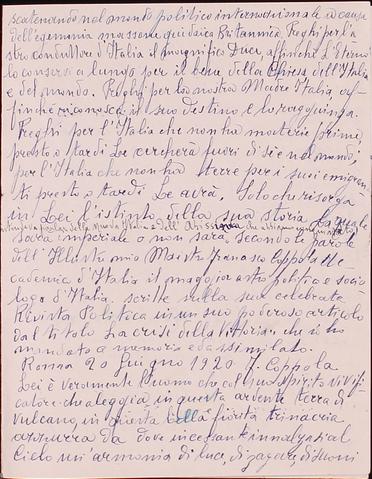 scatenando nel mondo politico internazionale a causa
dell'egemonia massone giudaica Britannica. Preghi per il
stro conduttore d'Italia il magnifico Duce, affinchè l'Eterno
lo conservi a lungo per il bene della Chiesa dell'Italia
e del mondo. Preghi per la nostra Madre Italia, af-
finchè riconosca il suo destino e lo raggiunga.
Preghi per l'Italia che non ha materie prime
presto o tardi Le cercherà fuori di sè e nel mondo,
per l'Italia che non ha terre per i suoi emigran
ti presto o tardi Le avrà. Solo che risorga
in Lei l'istinto della sua storia la quale
della Italia e dell'
sarà imperiale o non sarà, secondo le parole
dell'Illustre mio Maestro Francesco Coppola Ac
cademico d'Italia il maggior astro politico e socio
logo d'Italia. scritte nella sua celebrata
Rivista Politica in un suo poderoso articolo
dal titolo La crisi della Vittoria che io ho
mandato a memoria ed assimilato.
Roma 20 Giugno 1920. F. Coppola
Lei è veramente l'uomo che col suo spirito vivifi
catore che aleggia in questa ardente terra di
vulcano, in questa bella fiorita trinacria
azzurra da dove incessante innalzasi al
Cielo un'armonia di luce, di zagare, di suoni